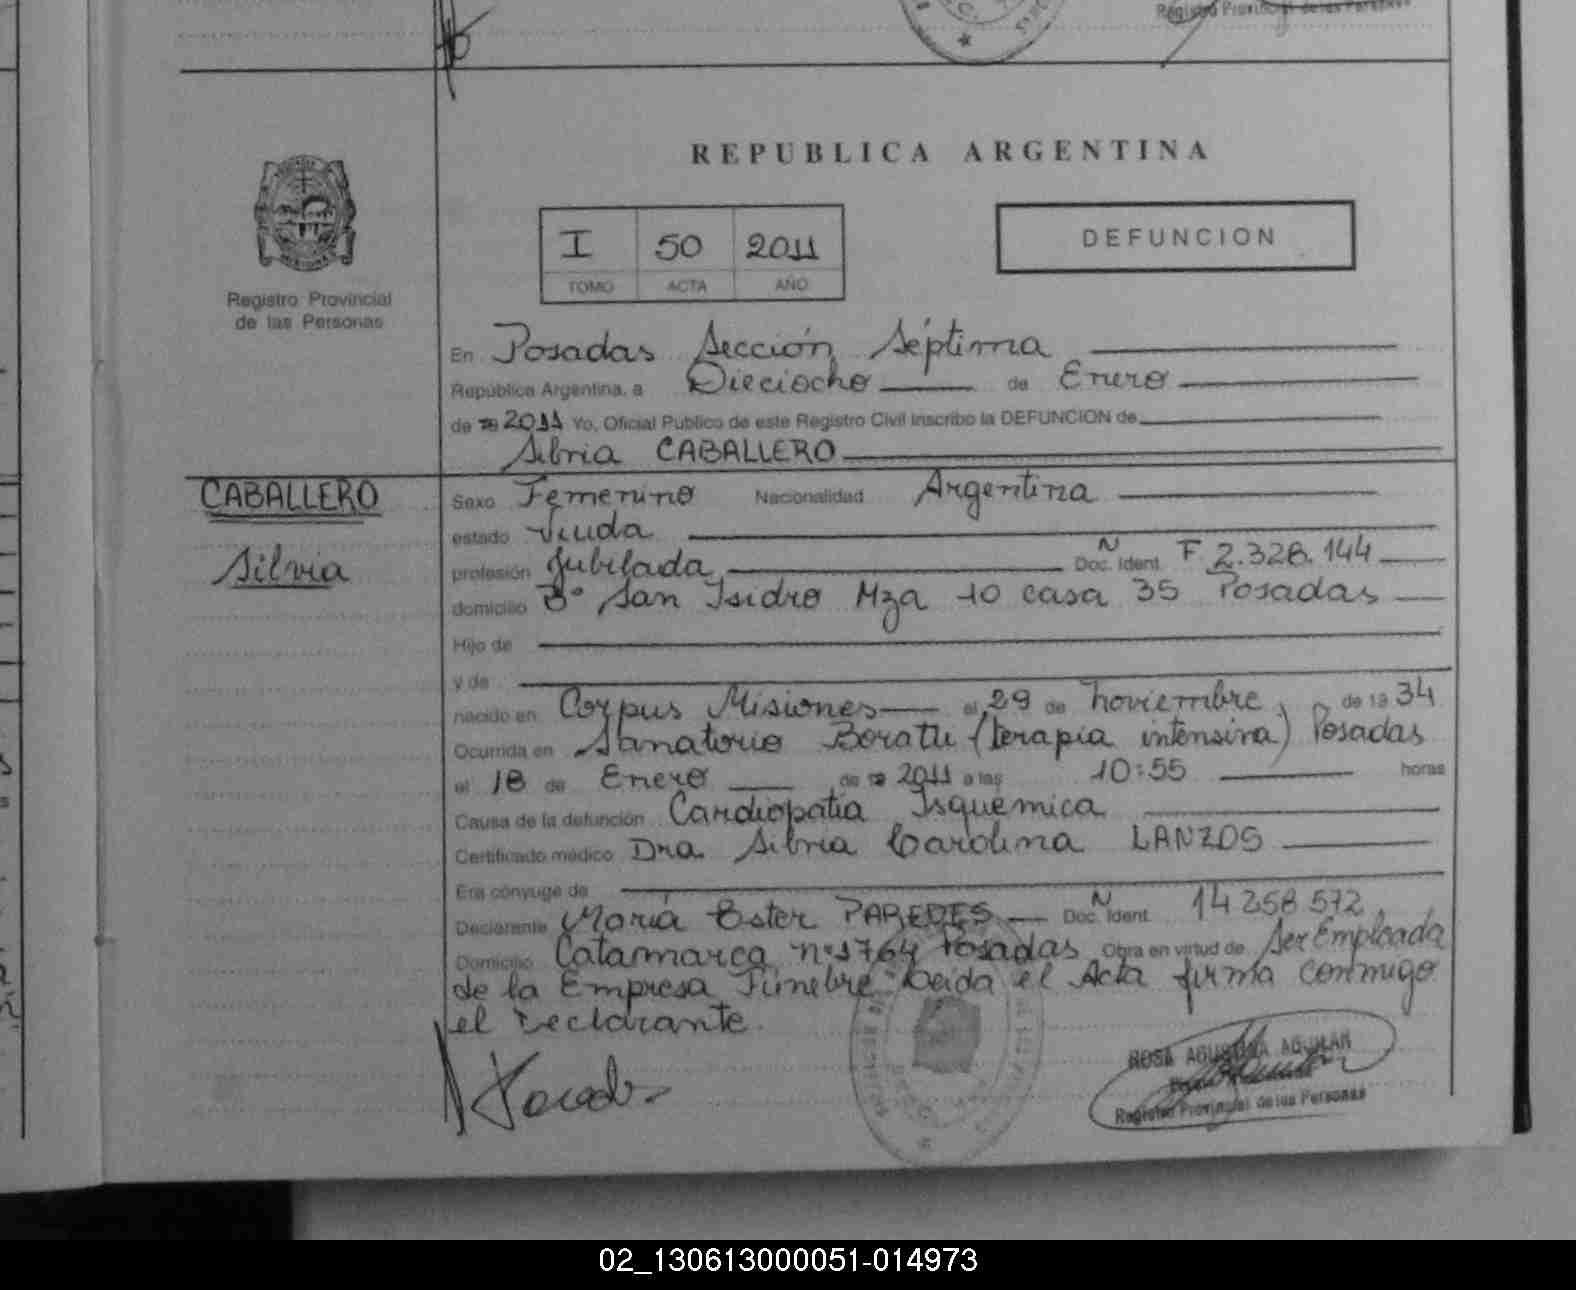 Registro Provincial de las Personas
REPUBLICA ARGENTINA
I 50 2011
TOMO ACTA AÑO
DEFUNCION
Registro Provincial
de las Personas
En Posadas Sección Séptima
República Argentina, a Dieciocho de Enero
de 2011 Yo, Oficial Público de este Registro Civil inscribo la DEFUNCION de
Silvia CABALLERO
CABALLERO
Silvia
Sexo Femenino Nacionalidad Argentina
estado Viuda
profesión Jubilada N Doc. Ident. F. 2.328.144
domicilio B° San Isidro Mza 10 casa 35 Posadas
Hijo de
y de
nacido en Corpus Misiones el 29 de noviembre de 19 34
Ocurrida en Sanatorio Boratti (terapia intensiva) Posadas
el 18 de Enero de 2011 a las 10:55 horas
Causa de la defunción Cardiopatia Isquemica
Certificado médico Dra. Silvia Carolina LANZOS
Era cónyuge de
Declarante María Ester PAREDES N Doc. Ident. 14 258 572
Domicilio Catamarca n° 1764 Posadas Obra en virtud de Ser Empleada
de la Empresa Fúnebre Leida el Acta firma conmigo
el Declarante
ROSA AGUSTINA AGUILAR
Registro Provincial de las Personas
02_130613000051-014973